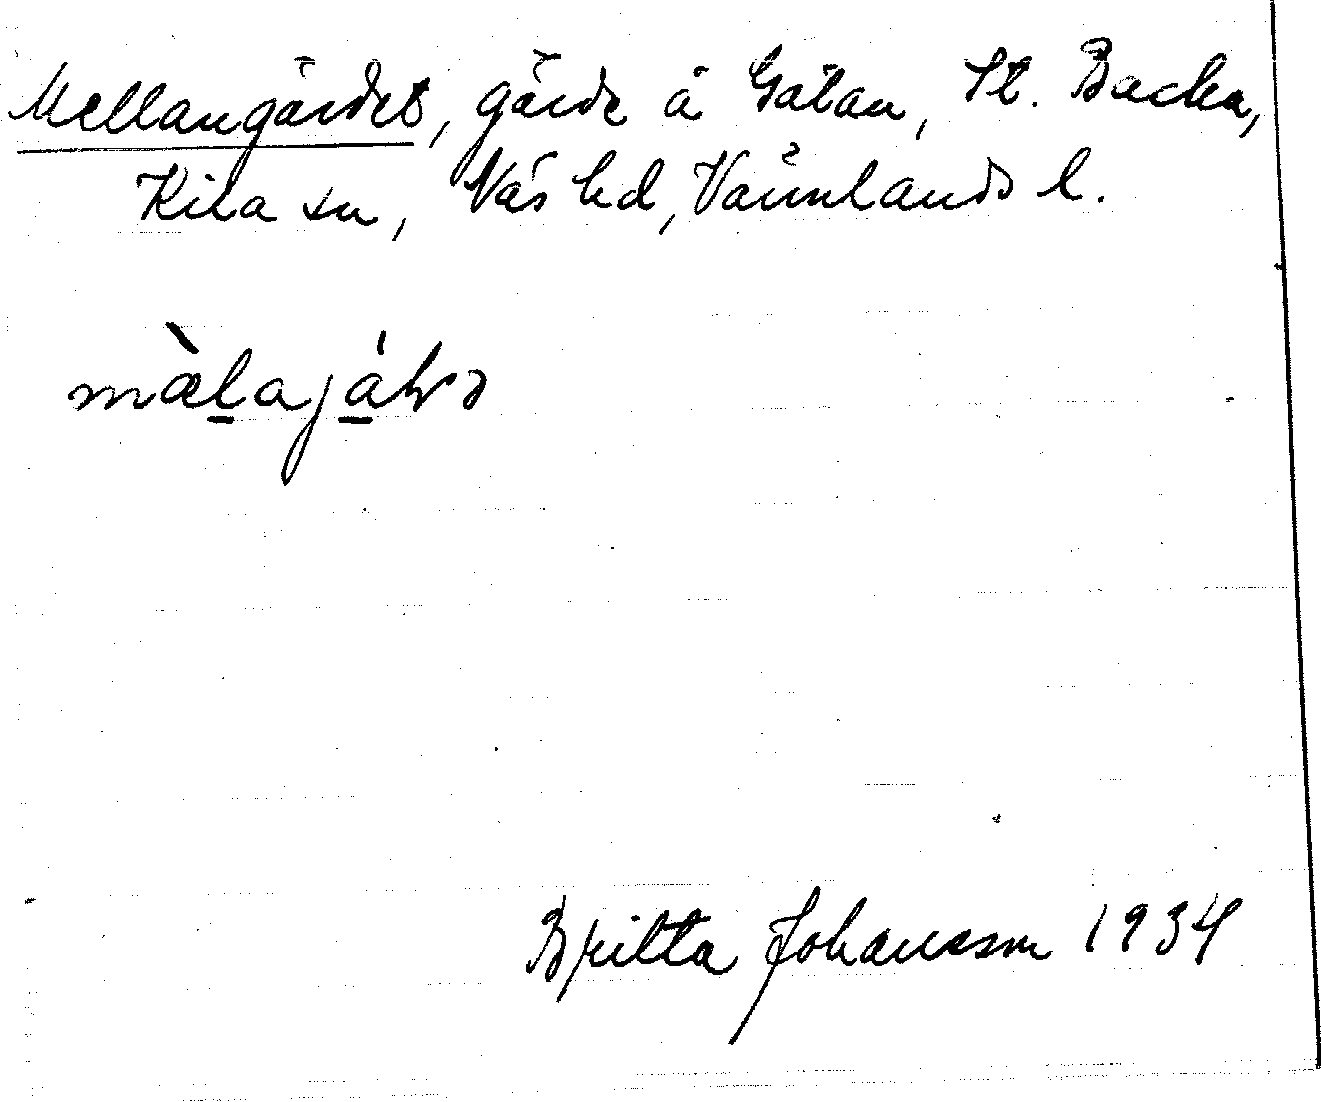 Mellangärdet, gärde å Gatan, St. Backa,
Kila sn, Näs hd, Värmlands l.
Britta Johansson 1934